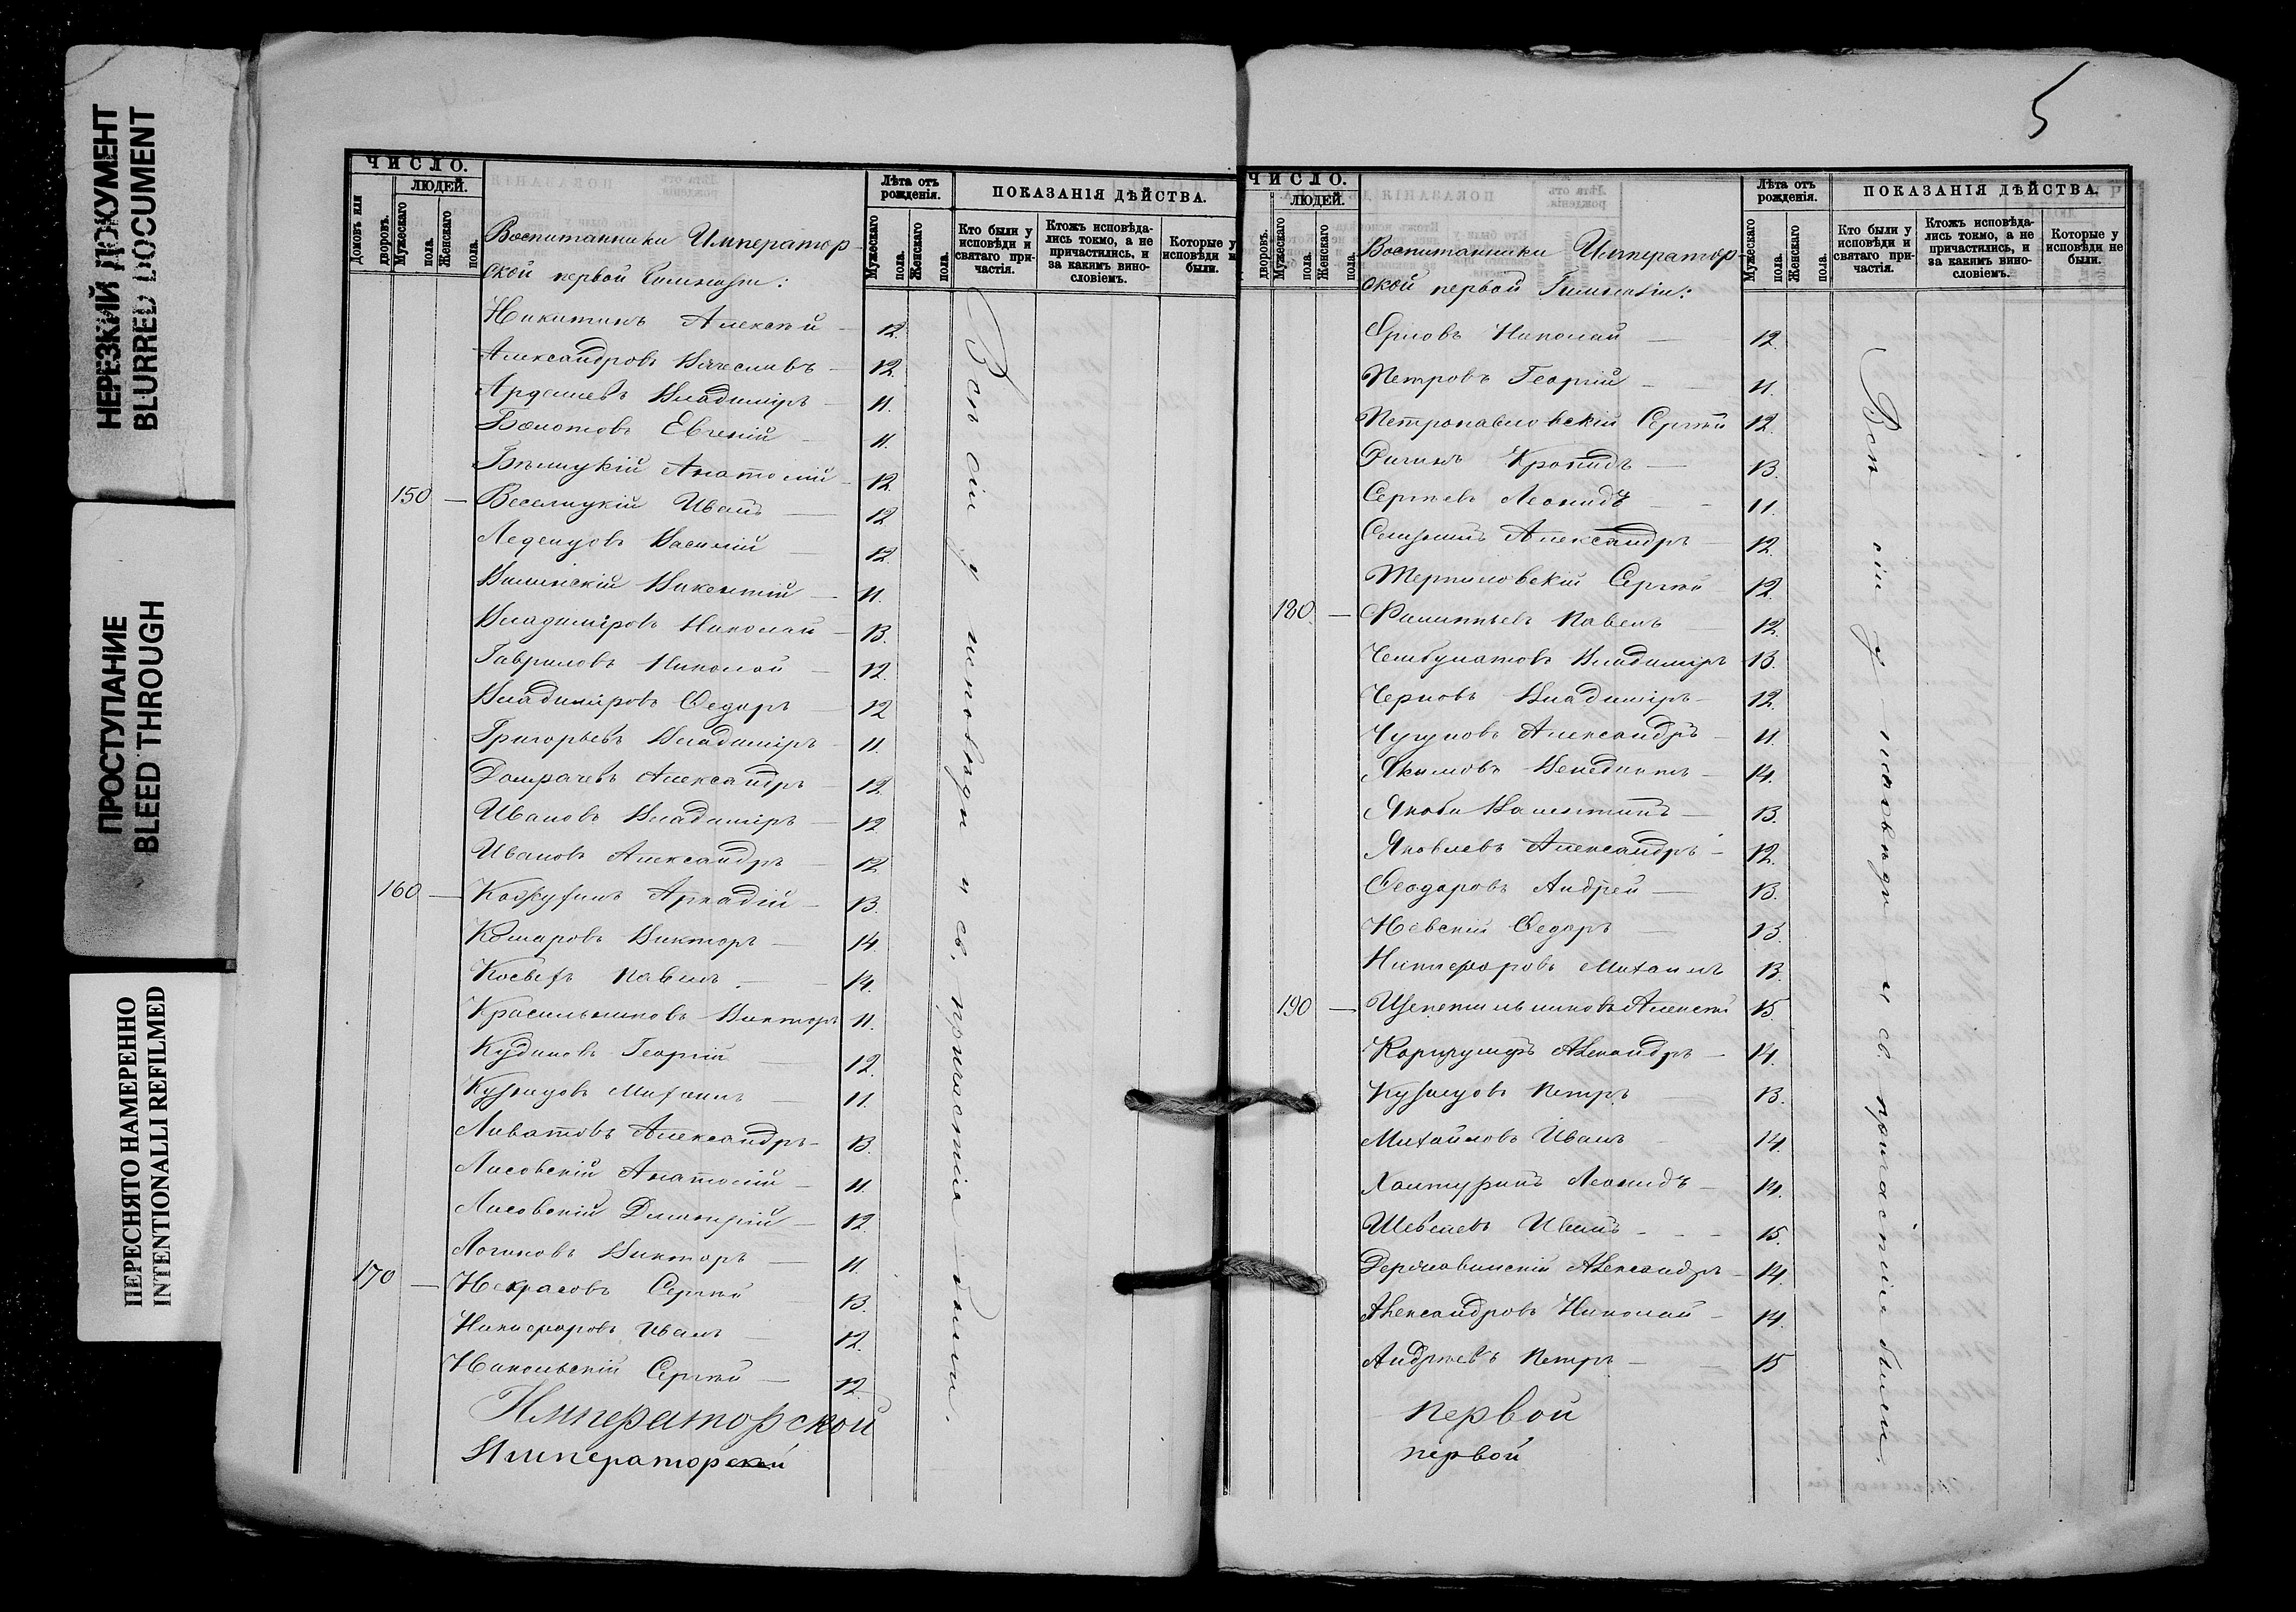 НЕРЕЗКИЙ ДОКУМЕНТ
BLURRED DOCUMENT
ПРОСТУПАНИЕ
BLEED THROUGH
ПЕРЕСНЯТО НАМЕРЕННО
INTENTIONALLI REFILMED
ЧИСЛО.
ЛЮДЕЙ.
Домовъ или дворовъ.
Мужескаго пола.
Женскаго пола.
Лѣта отъ рожденія.
Мужескаго пола.
Женскаго пола.
ПОКАЗАНІЯ ДѢЙСТВА.
Кто были у исповѣди и святаго причастія.
Ктожъ исповѣдались токмо, а не причастились, и за какимъ винословіемъ.
Которые у исповѣди не были.
Воспитанники Император-
ской первой Гимназіи:
Никитинъ Алексѣй 12.
Александровъ Вячеславъ 12.
Ардашевъ Владиміръ 11.
Болотовъ Евгеній 11.
Бѣлицкій Анатолій 12.
150 — Веселицкій Иванъ — 12
Леденцовъ Василій — 12.
Вилинскій Викентій — 11.
Владиміровъ Николай — 13.
Гавриловъ Николай — 12.
Владиміровъ Ѳедоръ — 12
Григорьевъ Владиміръ — 11.
Домрачевъ Александръ — 12
Ивановъ Владиміръ — 12
Ивановъ Александръ — 12
160 — Аркадій — 13.
Комаровъ Викторъ — 14.
Павелъ — 14.
Красильниковъ Викторъ 11.
Кудиновъ Георгій — 12.
Кузнецовъ Михаилъ — 11.
Ливатовъ Александръ — 13.
Лисовскій Анатолій — 11.
Лисовскій Димитрій — 12.
Логиновъ Викторъ — 11
170 — Некрасовъ Сергѣй 13.
Никифоровъ Иванъ — 12.
Никольскій Сергѣй — 12.
Императорской
Императорской
Всѣ сіи у исповѣди и св. причастія были.
5
ЧИСЛО.
ЛЮДЕЙ.
дворовъ.
Мужескаго пола.
Женскаго пола.
Лѣта отъ рожденія.
Мужескаго пола.
Женскаго пола.
ПОКАЗАНІЯ ДѢЙСТВА.
Кто были у исповѣди и святаго причастія.
Ктожъ исповѣдались токмо, а не причастились, и за какимъ винословіемъ.
Которые у исповѣди не были.
Воспитанники Император-
ской первой Гимназіи:
Орловъ Николай — 12.
Петровъ Георгій — 11.
Петропавловскій Сергѣй 12.
Кронидъ — 13.
Сергѣевъ Леонидъ — 11.
Александръ — 12.
Терпиловскій Сергѣй 12.
180 — Павелъ — 12.
Чембулатовъ Владиміръ 13.
Черновъ Владиміръ — 12.
Чугуновъ Александръ — 11.
Якимовъ Венедиктъ — 14.
Якоби Валентинъ — 13.
Яковлевъ Александръ — 12.
Ѳеодоровъ Андрей — 13.
Невскій Ѳедоръ — 13.
Никифоровъ Михаилъ 13.
190 — Щепетильниковъ Алексѣй 15.
Александръ — 14.
Кузнецовъ Петръ — 13.
Михайловъ Иванъ 14.
Халтуринъ Леонидъ — 14.
Шевелевъ Иванъ — 15.
Державинскій Александръ — 14.
Александровъ Николай — 14.
Андреевъ Петръ — 15
первой
первой
Всѣ сіи у исповѣди и св. причастія были.